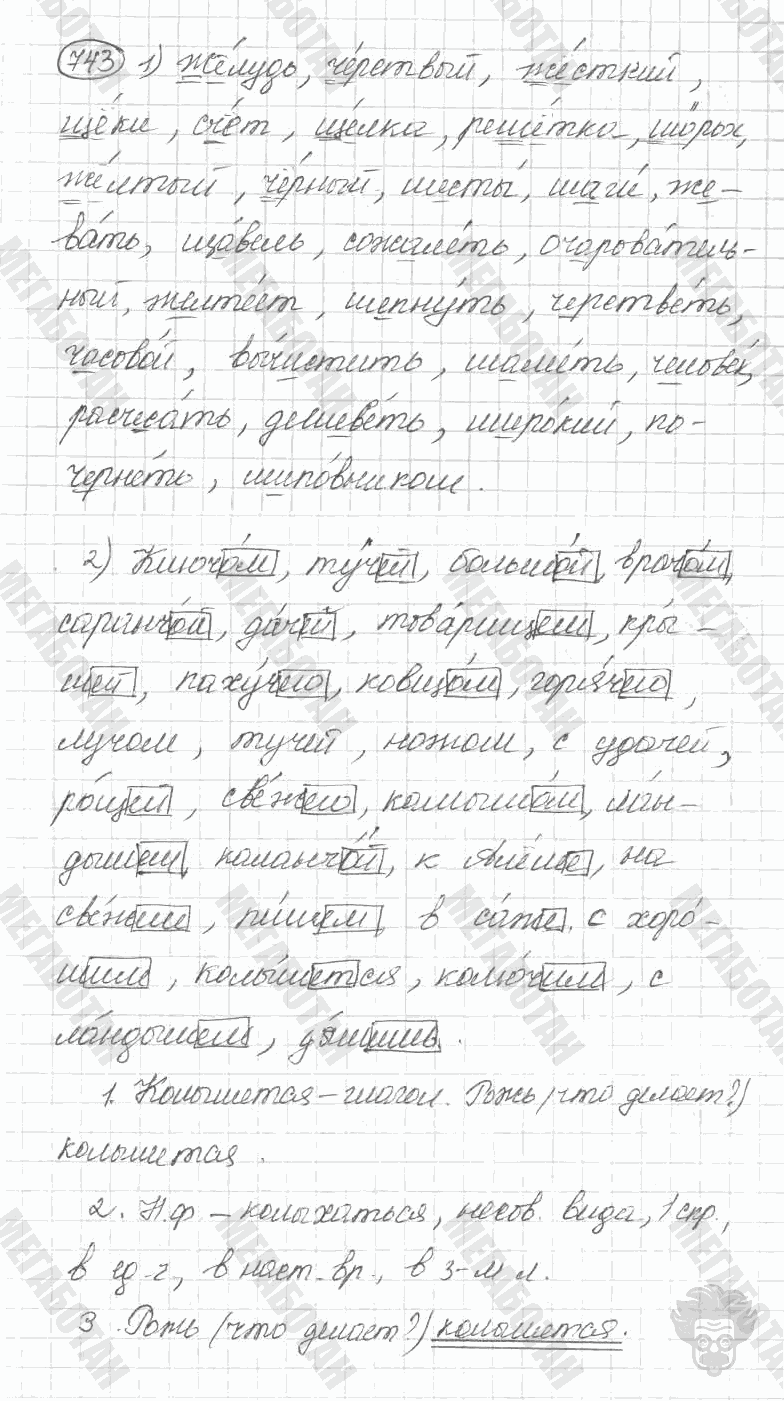 743 1) Жёлудь, чёрствый, жёсткий,
щёки, счёт, щёлка, решётка, шорох,
жёлтый, чёрный, шесты, шаги, же-
вать, щавель, сожалеть, очарователь-
ный, желтеет, шепнуть, черстветь,
часовой, вычистить, шалеть, человек,
расчесать, дешеветь, широкий, по-
чернеть, шиповником.
2) Ключом, тучей, большой, врачом,
саранчой, дачей, товарищем, кры-
шей, пахучего, ковшом, горячего,
лучом, тучей, ножом, с удачей,
рощей, свежего, камышом, лан-
дышем, каланчой, к Алёше, на
свежем, пишем, в саже, с хоро-
шим, колышется, колючим, с
ландышем, дышишь.
1. Колышется – глагол. Рожь (что делает?)
колышется.
2. Н.ф – колыхаться, несов. вида, 1 спр.,
в ед. ч., в наст. вр., в 3-м л.
3 Рожь (что делает?) колышется.
МЕГАБОТАН